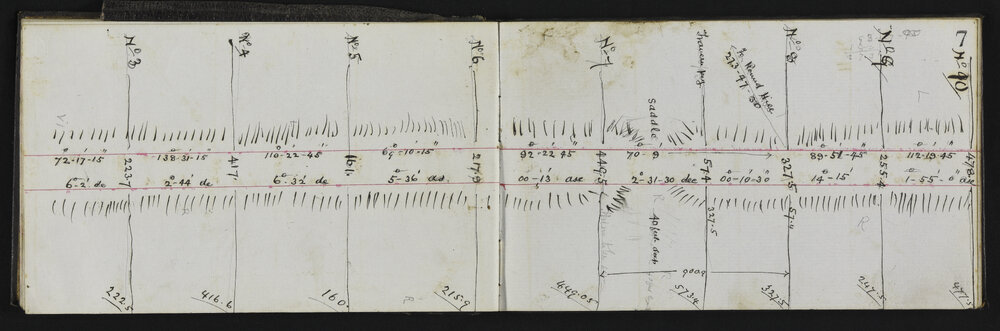 No 3
No 4
No 5
No 6
No 7
No 8
No 9
7
No 10
To Round Hill
273-47-30
Saddle
72-17-15"
138-31-15"
110-22-45"
69-10-15"
92-22-45"
70-9
89-51-45"
112-19-45"
223.7
417.
161.
217.9
449.5
574
327.5
255.4
478.
6-2' de
2-44 de
6-32 de
5-36 asc
00-13' asc
2-31-30 dec
00-10-30
14-15'
1-55-0" asc
R
R
40 feet deep
327.5
57.4
222.5
416.6
160.
215.9
449.05
573.4
327.5
247.5
477.5